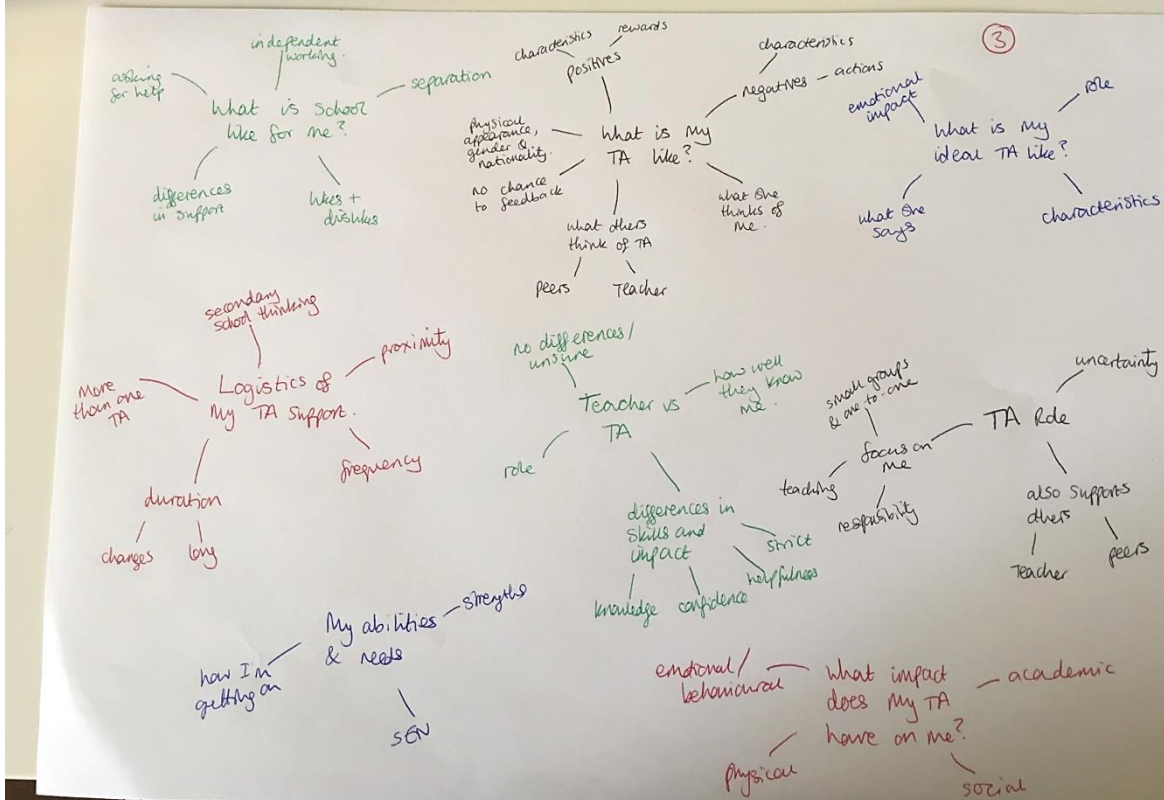 3
independent
working.
asking
for help
separation
What is School
like for me?
differences
in support
likes +
dislikes
characteristics
rewards
positives
characteristics
negatives – actions
physical
appearance,
gender &
nationality.
What is My
TA like?
no chance
to feedback
what she
thinks of
me.
what others
think of TA
peers
Teacher
emotional
impact
role
What is my
ideal TA like?
what she
says
characteristics
secondary
school thinking
proximity
More
than one
TA
Logistics of
My TA Support.
frequency
duration
changes
long
no differences/
unsure
how well
they know
me.
Teacher vs
TA
role
differences in
skills and
impact
strict
helpfulness
confidence
knowledge
small groups
& one-to-one
uncertainty
TA Role
focus on
me
teaching
responsibility
also supports
others
Teacher
peers
strengths
My abilities
& needs
how I'm
getting on
SEN
emotional/
behavioural
What impact
does My TA
have on me?
academic
physical
social